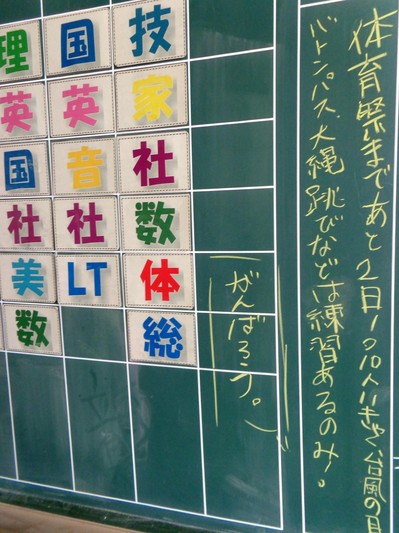 体育祭まであと2日!10人11きゃく、台風の目
バトンパス、大縄跳びなどは練習あるのみ!。
がんばろう。
技
家
社
数
体
総
国
英
音
社
LT
理
英
国
社
美
数